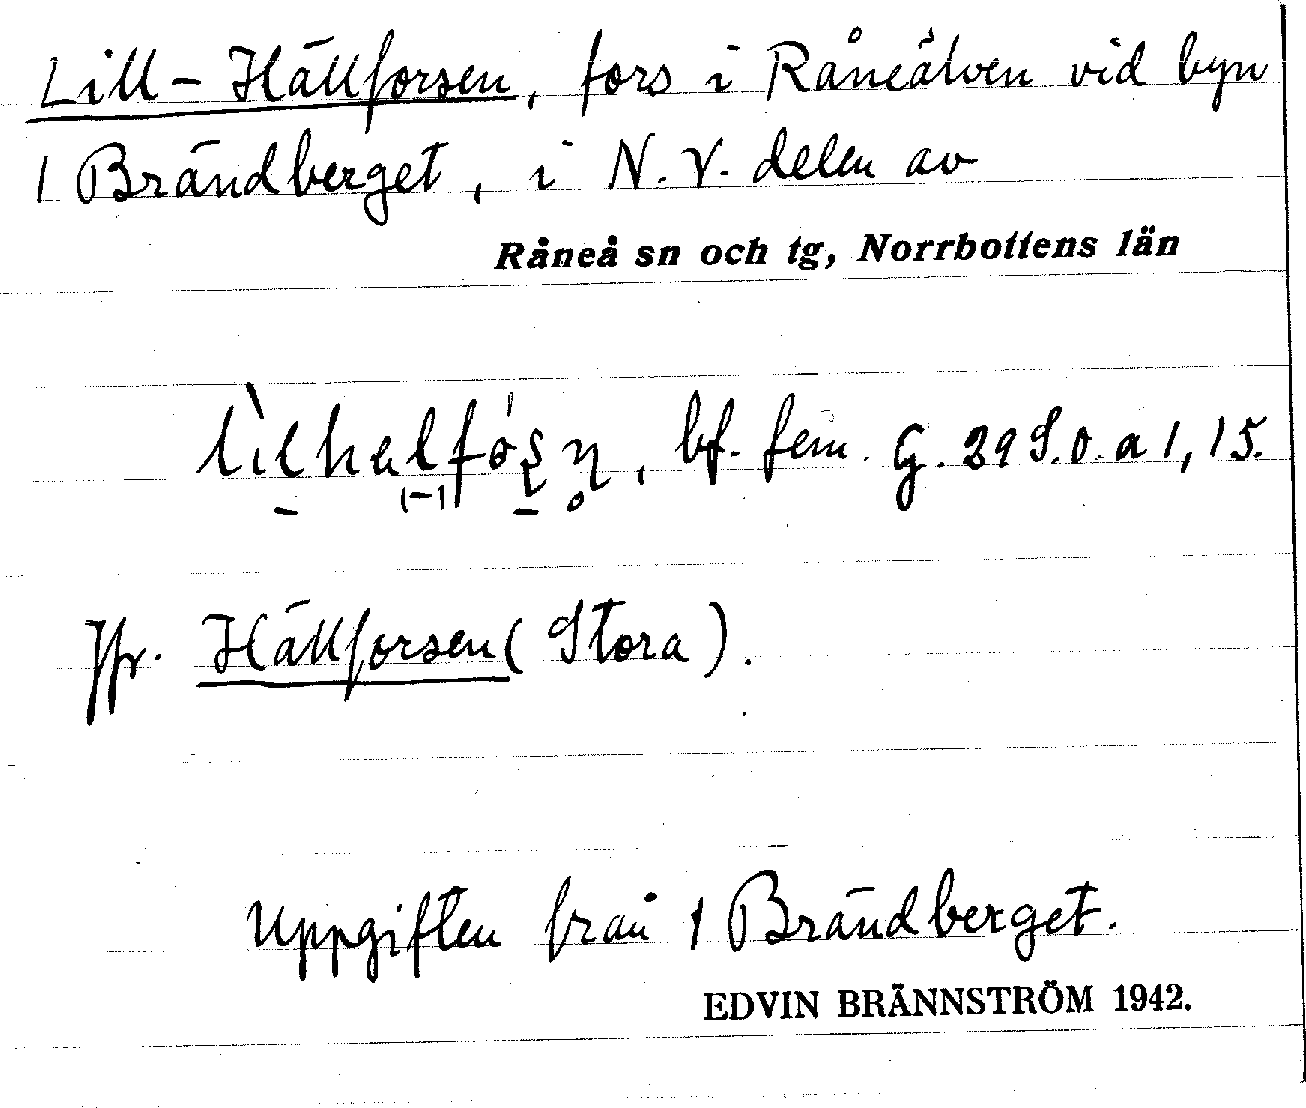 Lill-Hällforsen, fors i Råneälven vid byn
1 Brändberget, i N.V. delen av
Råneå sn och tg, Norrbottens län
bf. fem. G. 29 S.O. a 1, 15.
Jfr. Hällforsen (Stora).
Uppgiften från 1 Brändberget.
EDVIN BRÄNNSTRÖM 1942.